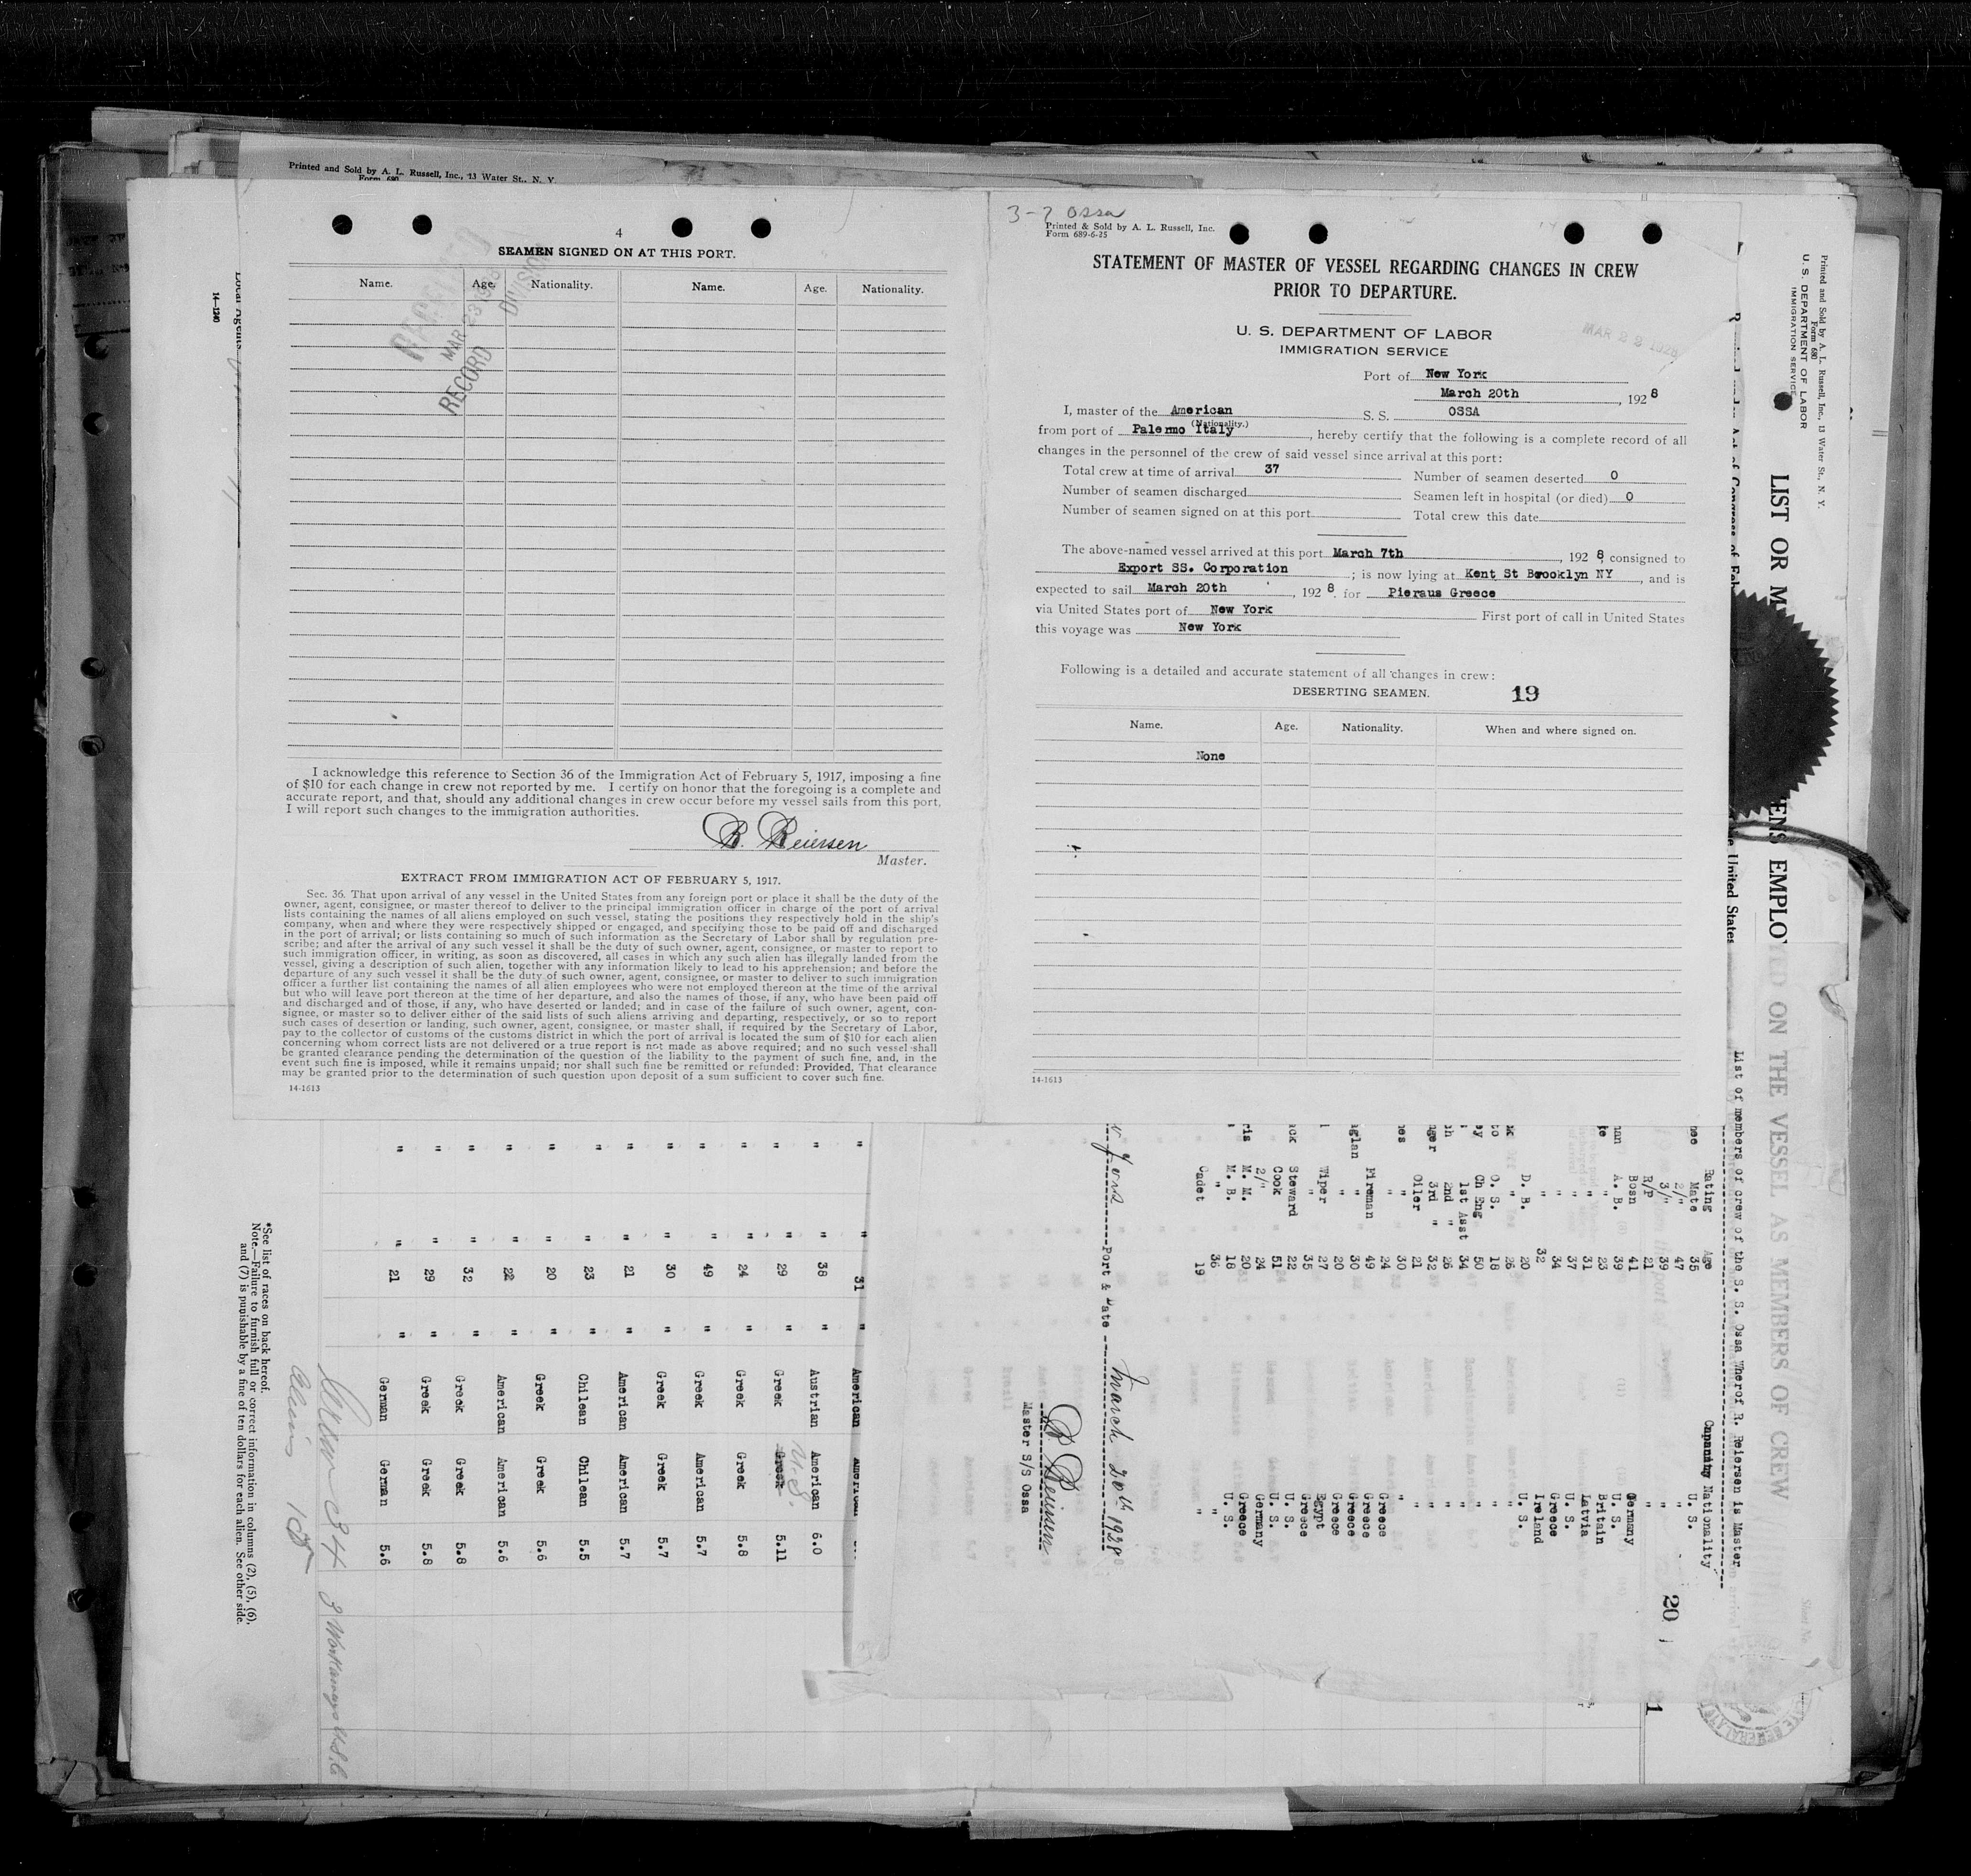 Printed and Sold by A. L. Russell, Inc., 13 Water St., N. Y.
Form 680
4
SEAMEN SIGNED ON AT THIS PORT.
Name. Age. Nationality. Name. Age. Nationality.
MAR 23 1928
RECORD DIVISION
I acknowledge this reference to Section 36 of the Immigration Act of February 5, 1917, imposing a fine
of $10 for each change in crew not reported by me. I certify on honor that the foregoing is a complete and
accurate report, and that, should any additional changes in crew occur before my vessel sails from this port,
I will report such changes to the immigration authorities.
B. Reiersen
Master.
EXTRACT FROM IMMIGRATION ACT OF FEBRUARY 5, 1917.
Sec. 36. That upon arrival of any vessel in the United States from any foreign port or place it shall be the duty of the
owner, agent, consignee, or master thereof to deliver to the principal immigration officer in charge of the port of arrival
lists containing the names of all aliens employed on such vessel, stating the positions they respectively hold in the ship's
company, when and where they were respectively shipped or engaged, and specifying those to be paid off and discharged
in the port of arrival; or lists containing so much of such information as the Secretary of Labor shall by regulation pre-
scribe; and after the arrival of any such vessel it shall be the duty of such owner, agent, consignee, or master to report to
such immigration officer, in writing, as soon as discovered, all cases in which any such alien has illegally landed from the
vessel, giving a description of such alien, together with any information likely to lead to his apprehension; and before the
departure of any such vessel it shall be the duty of such owner, agent, consignee, or master to deliver to such immigration
officer a further list containing the names of all alien employees who were not employed thereon at the time of the arrival
but who will leave port thereon at the time of her departure, and also the names of those, if any, who have been paid off
and discharged and of those, if any, who have deserted or landed; and in case of the failure of such owner, agent, con-
signee, or master so to deliver either of the said lists of such aliens arriving and departing, respectively, or so to report
such cases of desertion or landing, such owner, agent, consignee, or master shall, if required by the Secretary of Labor,
pay to the collector of customs of the customs district in which the port of arrival is located the sum of $10 for each alien
concerning whom correct lists are not delivered or a true report is not made as above required; and no such vessel shall
be granted clearance pending the determination of the question of the liability to the payment of such fine, and, in the
event such fine is imposed, while it remains unpaid; nor shall such fine be remitted or refunded: Provided, That clearance
may be granted prior to the determination of such question upon deposit of a sum sufficient to cover such fine.
14-1613
3-7 Ossa
Printed & Sold by A. L. Russell, Inc.
Form 689-6-25
STATEMENT OF MASTER OF VESSEL REGARDING CHANGES IN CREW
PRIOR TO DEPARTURE.
U. S. DEPARTMENT OF LABOR
IMMIGRATION SERVICE
MAR 22 1928
Port of New York
March 20th, 1928
I, master of the American S. S. OSSA
(Nationality.)
from port of Palermo Italy, hereby certify that the following is a complete record of all
changes in the personnel of the crew of said vessel since arrival at this port:
Total crew at time of arrival 37 Number of seamen deserted 0
Number of seamen discharged Seamen left in hospital (or died) 0
Number of seamen signed on at this port Total crew this date
The above-named vessel arrived at this port March 7th, 1928, consigned to
Export SS. Corporation; is now lying at Kent St Brooklyn NY, and is
expected to sail March 20th, 1928. for Pieraus Greece
via United States port of New York First port of call in United States
this voyage was New York
Following is a detailed and accurate statement of all changes in crew:
DESERTING SEAMEN. 19
Name. Age. Nationality. When and where signed on.
None
14-1613
Printed and Sold by A. L. Russell, Inc., 13 Water St., N. Y.
Form 680
U. S. DEPARTMENT OF LABOR
IMMIGRATION SERVICE
LIST OR M ENS EMPLOYED ON THE VESSEL AS MEMBERS OF CREW
List of members of crew of the S. S. Ossa Wherof R. Reierse is Master
20
Rating Age Nationality
Mate 35 U. S.
2/" 47 "
3/" 39 "
R/P 21 "
Bosn 41 Germany
A. B. 39 U. S.
" 23 Britain
" 31 Latvia
" 37 U. S.
" 34 Greece
" 32 Ireland
D. B. 20 U. S.
" 26 "
O. S. 18 "
Ch Eng 50 "
1st Asst 34 "
2nd " 26 "
3rd " 32 "
Oiler 21 "
" 30 "
" 24 Greece
Fireman 49 Greece
" 30 Greece
" 20 Greece
Wiper 27 Egypt
" 35 Greece
Steward 22 U. S.
Cook 51 U. S.
2/" 24 Germany
M. M. 20 Greece
M. B. 18 U. S.
" 36 "
Cadet 19 "
Port & Date March 20th 1928
B Reiersen
Master S/S Ossa
" " 31 " American American
" " 38 " Austrian American 6.0
" " 29 " Greek Greek U.S. 5.11
" " 24 " Greek Greek 5.8
" " 49 " Greek American 5.7
" " 30 " Greek Greek 5.7
" " 21 " American American 5.7
" " 23 " Chilean Chilean 5.5
" " 20 " Greek Greek 5.6
" " 22 " American American 5.6
" " 32 " Greek Greek 5.8
" " 29 " Greek Greek 5.8
" 21 " German German 5.6
3 Workaways U.S.C.
*See list of races on back hereof.
Note.—Failure to furnish full or correct information in columns (2), (5), (6),
and (7) is punishable by a fine of ten dollars for each alien. See other side.
14-1240